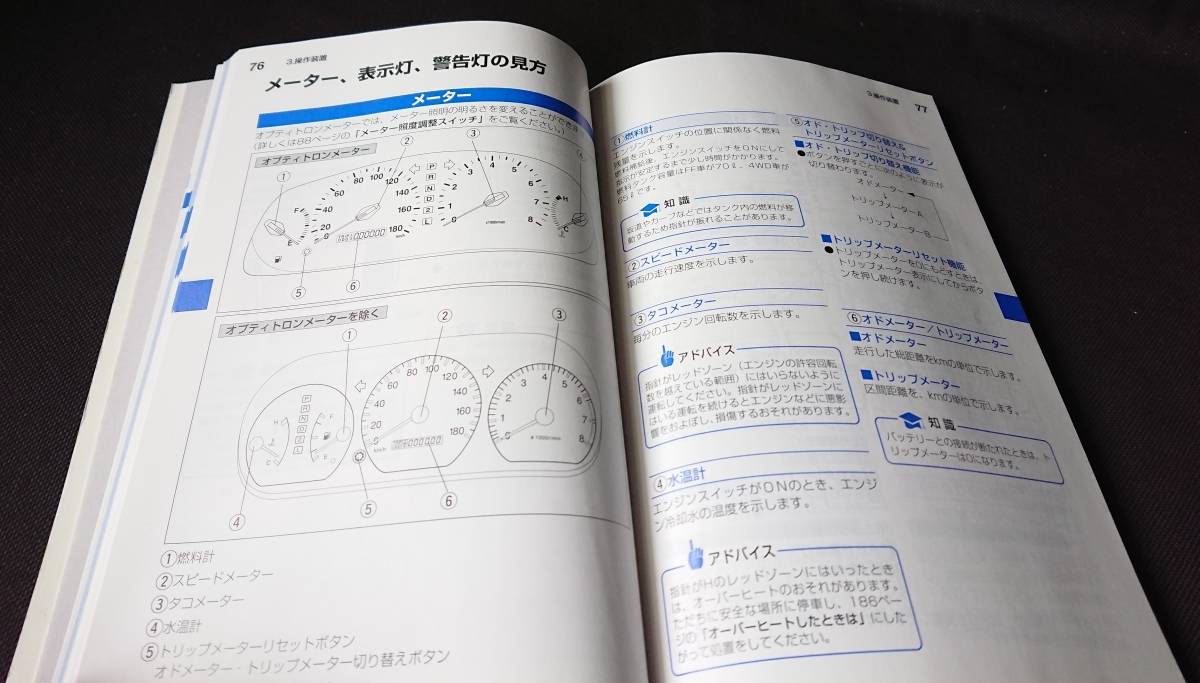 76 3.操作装置
メーター、表示灯、警告灯の見方
メーター
オプティトロンメーターでは、メーター照明の明るさを変えることができます
(詳しくは88ページの「メーター照度調整スイッチ」をご覧ください。)
オプティトロンメーター
① ② ③
0 20 40 60 80 100 120 140 160 180
km/h
P R N D 2 L
0 1 2 3 4 5 6 7 8
×1000r/min
F E
H C
⑤ ⑥
オプティトロンメーターを除く
① ② ③
P R N D 2 L
H C
F E
0 20 40 60 80 100 120 140 160 180
km/h
0 1 2 3 4 5 6 7 8
×1000r/min
④ ⑤ ⑥
①燃料計
②スピードメーター
③タコメーター
④水温計
⑤トリップメーターリセットボタン
オドメーター・トリップメーター切り替えボタン
3.操作装置 77
①燃料計
エンジンスイッチの位置に関係なく燃料
残量を示します。
燃料補給後、エンジンスイッチをONにして
指示が安定するまで少し時間がかかります。
燃料タンク容量はFF車が70ℓ、4WD車が
65ℓです。
知識
坂道やカーブなどではタンク内の燃料が移
動するため指針が振れることがあります。
②スピードメーター
車両の走行速度を示します。
③タコメーター
毎分のエンジン回転数を示します。
アドバイス
指針がレッドゾーン(エンジンの許容回転
数を越えている範囲)にはいらないように
運転してください。指針がレッドゾーンに
はいる運転を続けるとエンジンなどに悪影
響をおよぼし、損傷するおそれがあります。
④水温計
エンジンスイッチがONのとき、エンジ
ン冷却水の温度を示します。
アドバイス
指針がHのレッドゾーンにはいったとき
は、オーバーヒートのおそれがあります。
ただちに安全な場所に停車し、186ペー
ジの「オーバーヒートしたときは」にした
がって処置をしてください。
⑤オド・トリップ切り替え&
トリップメーターリセットボタン
■オド・トリップ切り替え機能
●ボタンを押すごとに次のように表示が
切り替わります。
オドメーター
↓
トリップメーターA
↓
トリップメーターB
■トリップメーターリセット機能
●トリップメーターを0にもどすときは、
トリップメーター表示にしてからボタ
ンを押し続けます。
⑥オドメーター/トリップメーター
■オドメーター
走行した総距離をkmの単位で示します。
■トリップメーター
区間距離を、kmの単位で示します。
知識
バッテリーとの接続が断たれたときは、ト
リップメーターは0になります。